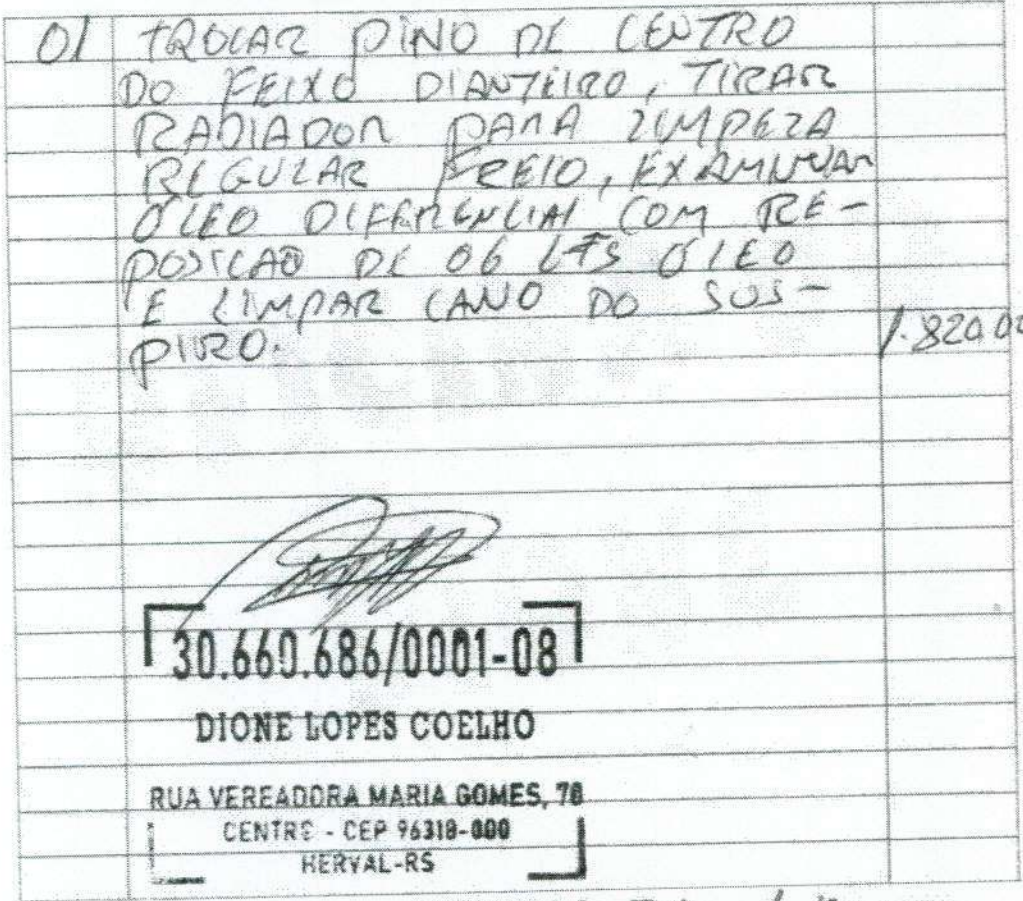 01 TROCAR PINO DE CENTRO
DO FEIXO DIANTEIRO, TIRAR
RADIADOR PARA LIMPEZA
REGULAR FREIO, EXAMINAR
ÓLEO DIFERENCIAL COM RE-
POSICAO DE 06 LTS ÓLEO
E LIMPAR CANO DO SUS-
PIRO. 1.820,00
30.660.686/0001-08
DIONE LOPES COELHO
RUA VEREADORA MARIA GOMES, 78
CENTRO - CEP 96310-000
HERVAL-RS